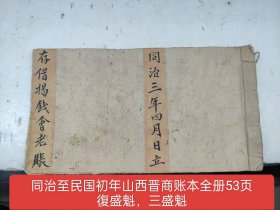 同治三年四月日立
存借揭錢會老賬
同治至民国初年山西晋商账本全册53页
復盛魁，三盛魁